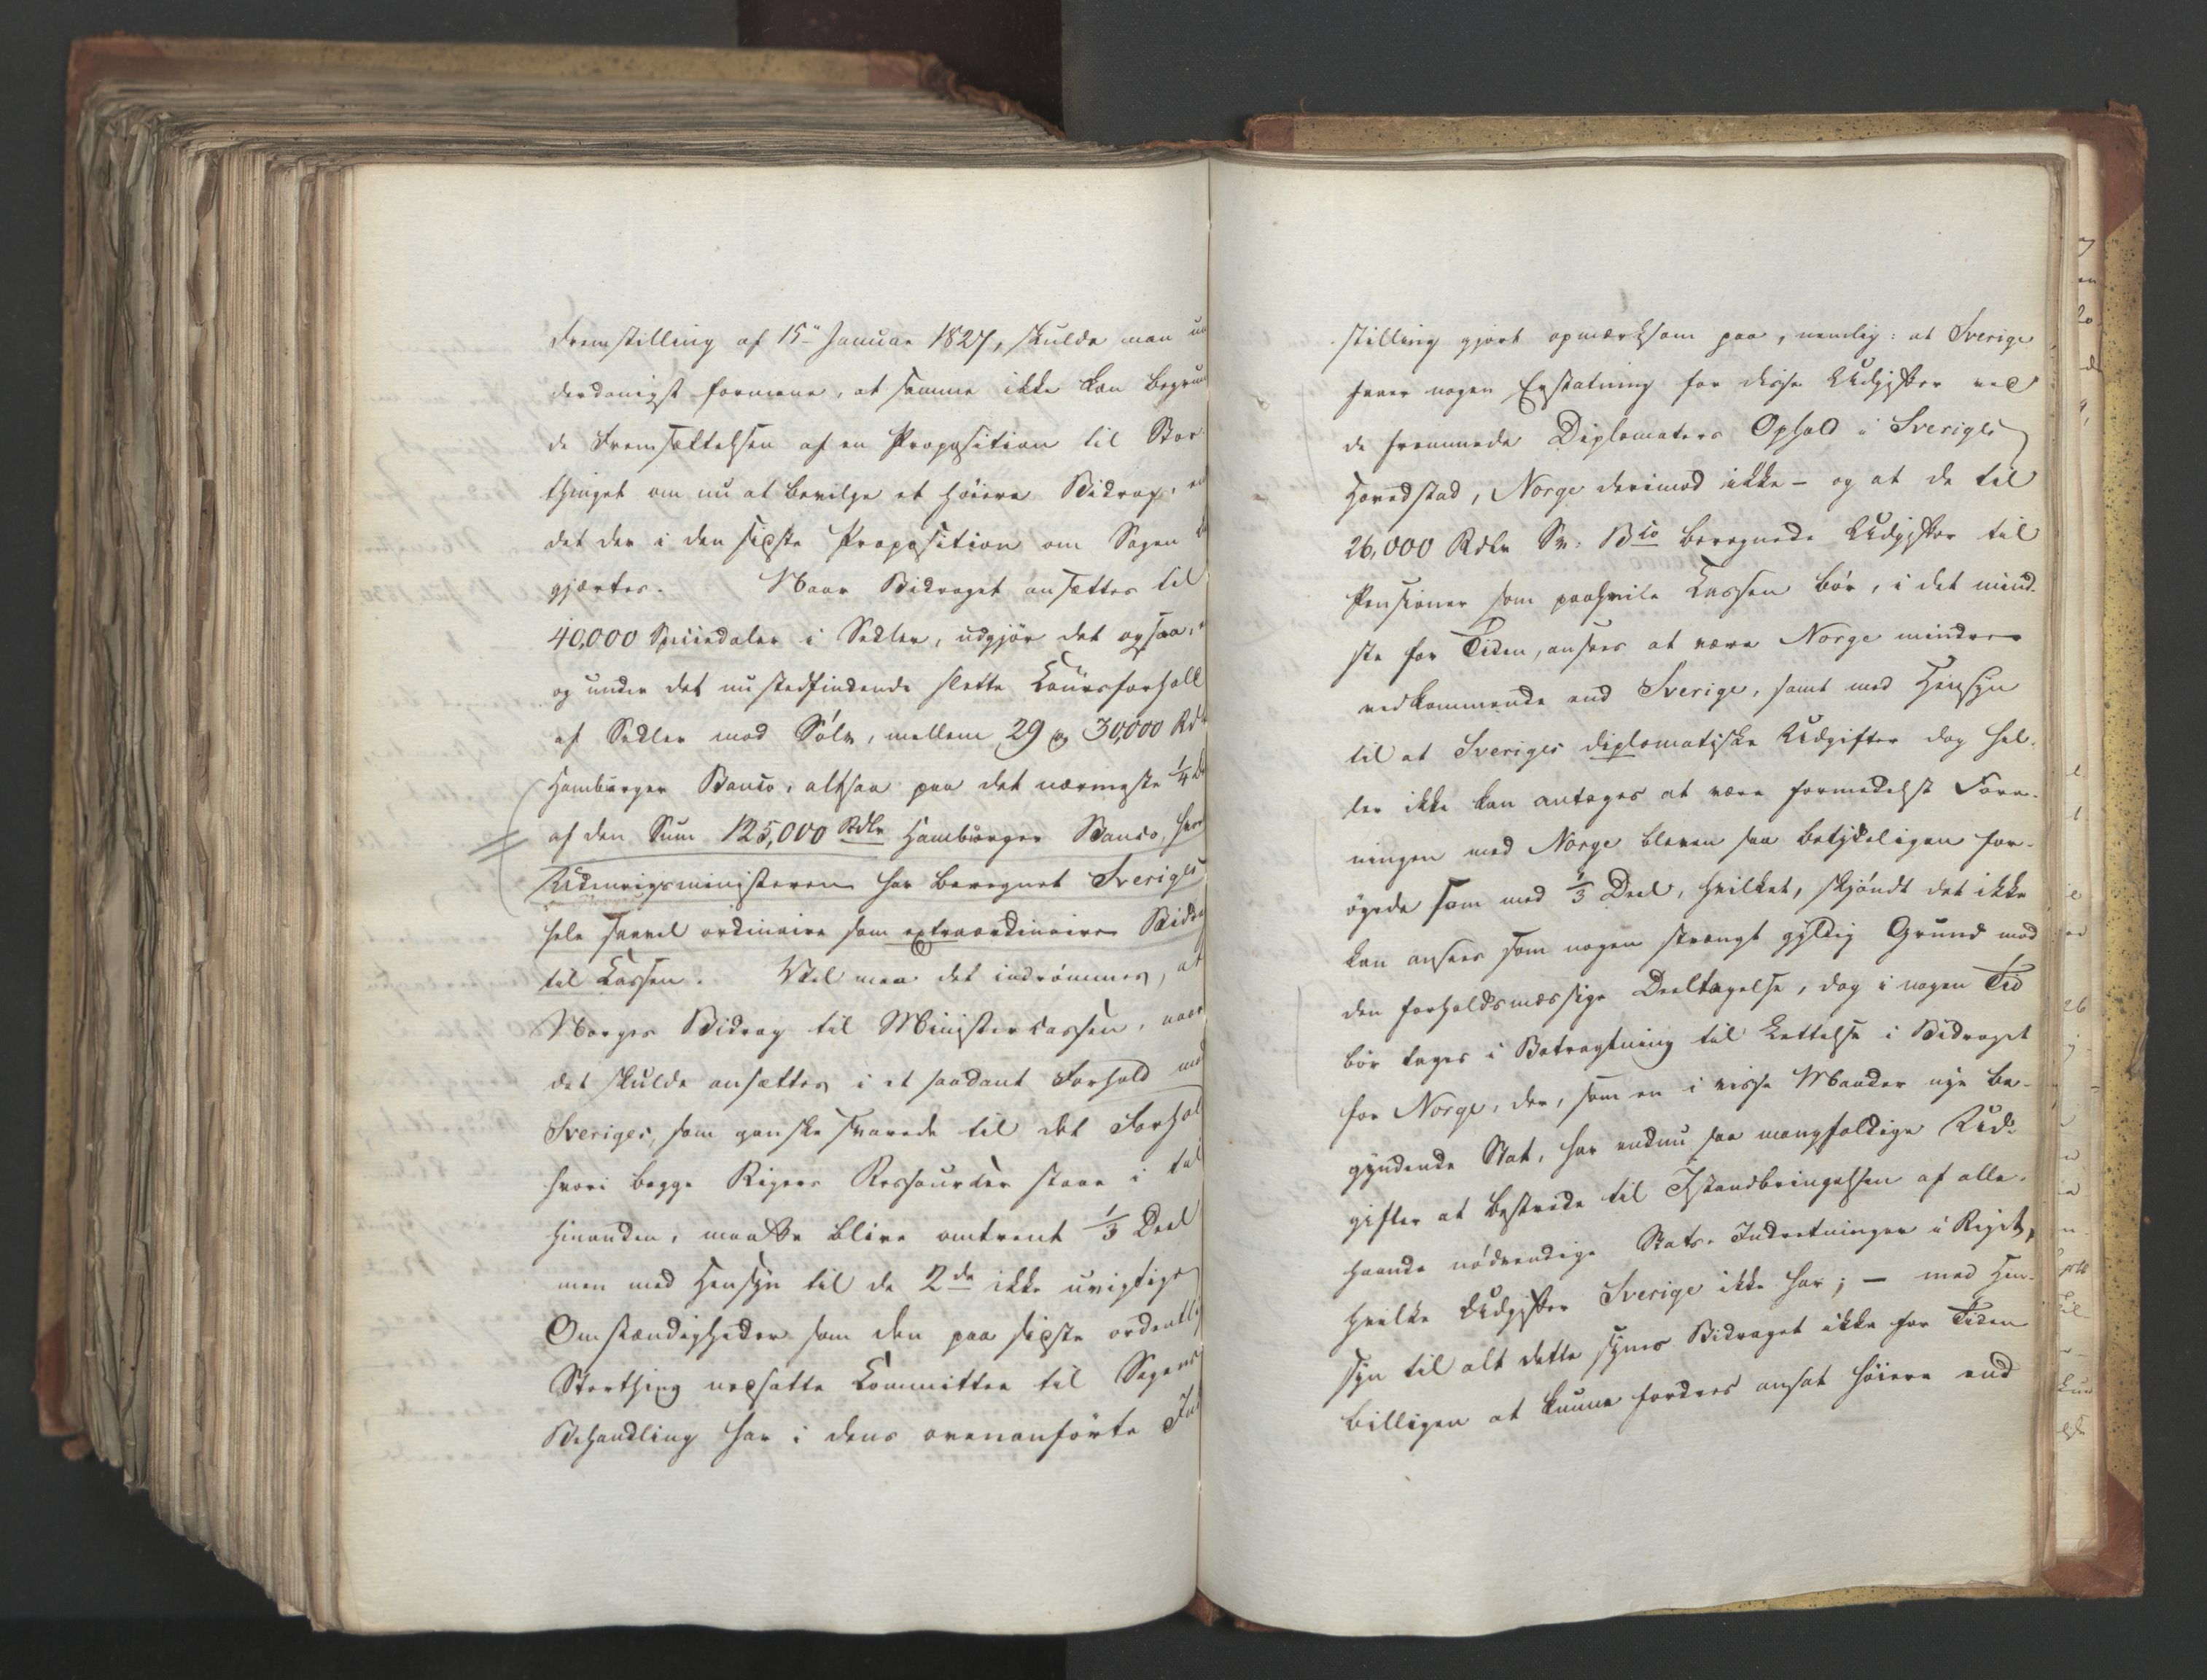 Fremstilling af 15<sup>de</sup> Januar 1827, skulde man un
derdanigst formene, at samme ikke kan begrun
de Fremsættelsen af en Proposition til Stor-
thinget om nu at bevilge et høiere Bidrag, end
det der i den sidste Proposition om Sagen
gjærtes. Naar Bidraget ansættes til
40,000 Speciedaler i Sedler, udgjør det ogsaa,
og under det nu stedfindende slette Coursforhold
af Sedler mod Sølv, mellem 29 og 30,000 Rd
Hamburger Banco, altsaa paa det nærmeste 1/4 De
af den Sum 125,000 Rdlr Hamburger Banco, hvor
Udenrigsministeren har beregnet Sveriges
hele saavel ordinaire som extraordinaire Bidra
til Cassen. Vel maa det indrømmes, at
Norges Bidrag til Ministercassen, naar
det skulde ansættes i et saadant Forhold med
Sveriges, som ganske svarede til det Forhol
hvori begge Rigers Ressourcer staae i til
hinanden, maatte blive omtrent 1/3 Deel
men med Hensyn til de 2de ikke uvigtige
Omstændigheder som den paa sidste ordentli
Storthing nedsatte Committee til Sagens
Behandling har i dens ovenanførte Ind
stilling gjort opmærksom paa, nemlig: at Sverige
haver nogen Erstatning for disse Udgifter ved
de fremmede Diplomaters Ophold i Sveriges
Hovedstad, Norge derimod ikke – og at de til
26,000 Rdlr Sv: Bco beregnede Udgifter til
Pensioner som paahvile Cassen bør, i det mind-
ste for Tiden, ansees at være Norge mindre
vedkommende end Sverige, samt med Hensyn
til at Sveriges diplomatiske Udgifter dog hel-
ler ikke kan antages at være formedelst Fore-
ningen med Norge bleven saa betydeligen for-
øgede som med 1/3 Deel, hvilket, skjøndt det ikke
kan ansees som nogen strængt gyldig Grund mod
den forholdsmæssige Deeltagelse, dog i nogen Tid
bør tages i Betragtning til Lettelse i Bidraget
for Norge, der, som en i visse Maader nye be-
gyndende Stat, har endnu saa mangfoldige Ud-
gifter at bestride til Istandbringelsen af alle-
haande nødvendige Stats-Indretninger i Riget,
hvilke Udgifter Sverige ikke har; – med Hen-
syn til alt dette synes Bidraget ikke for Tiden
billigen at kunne fordres ansat høiere end